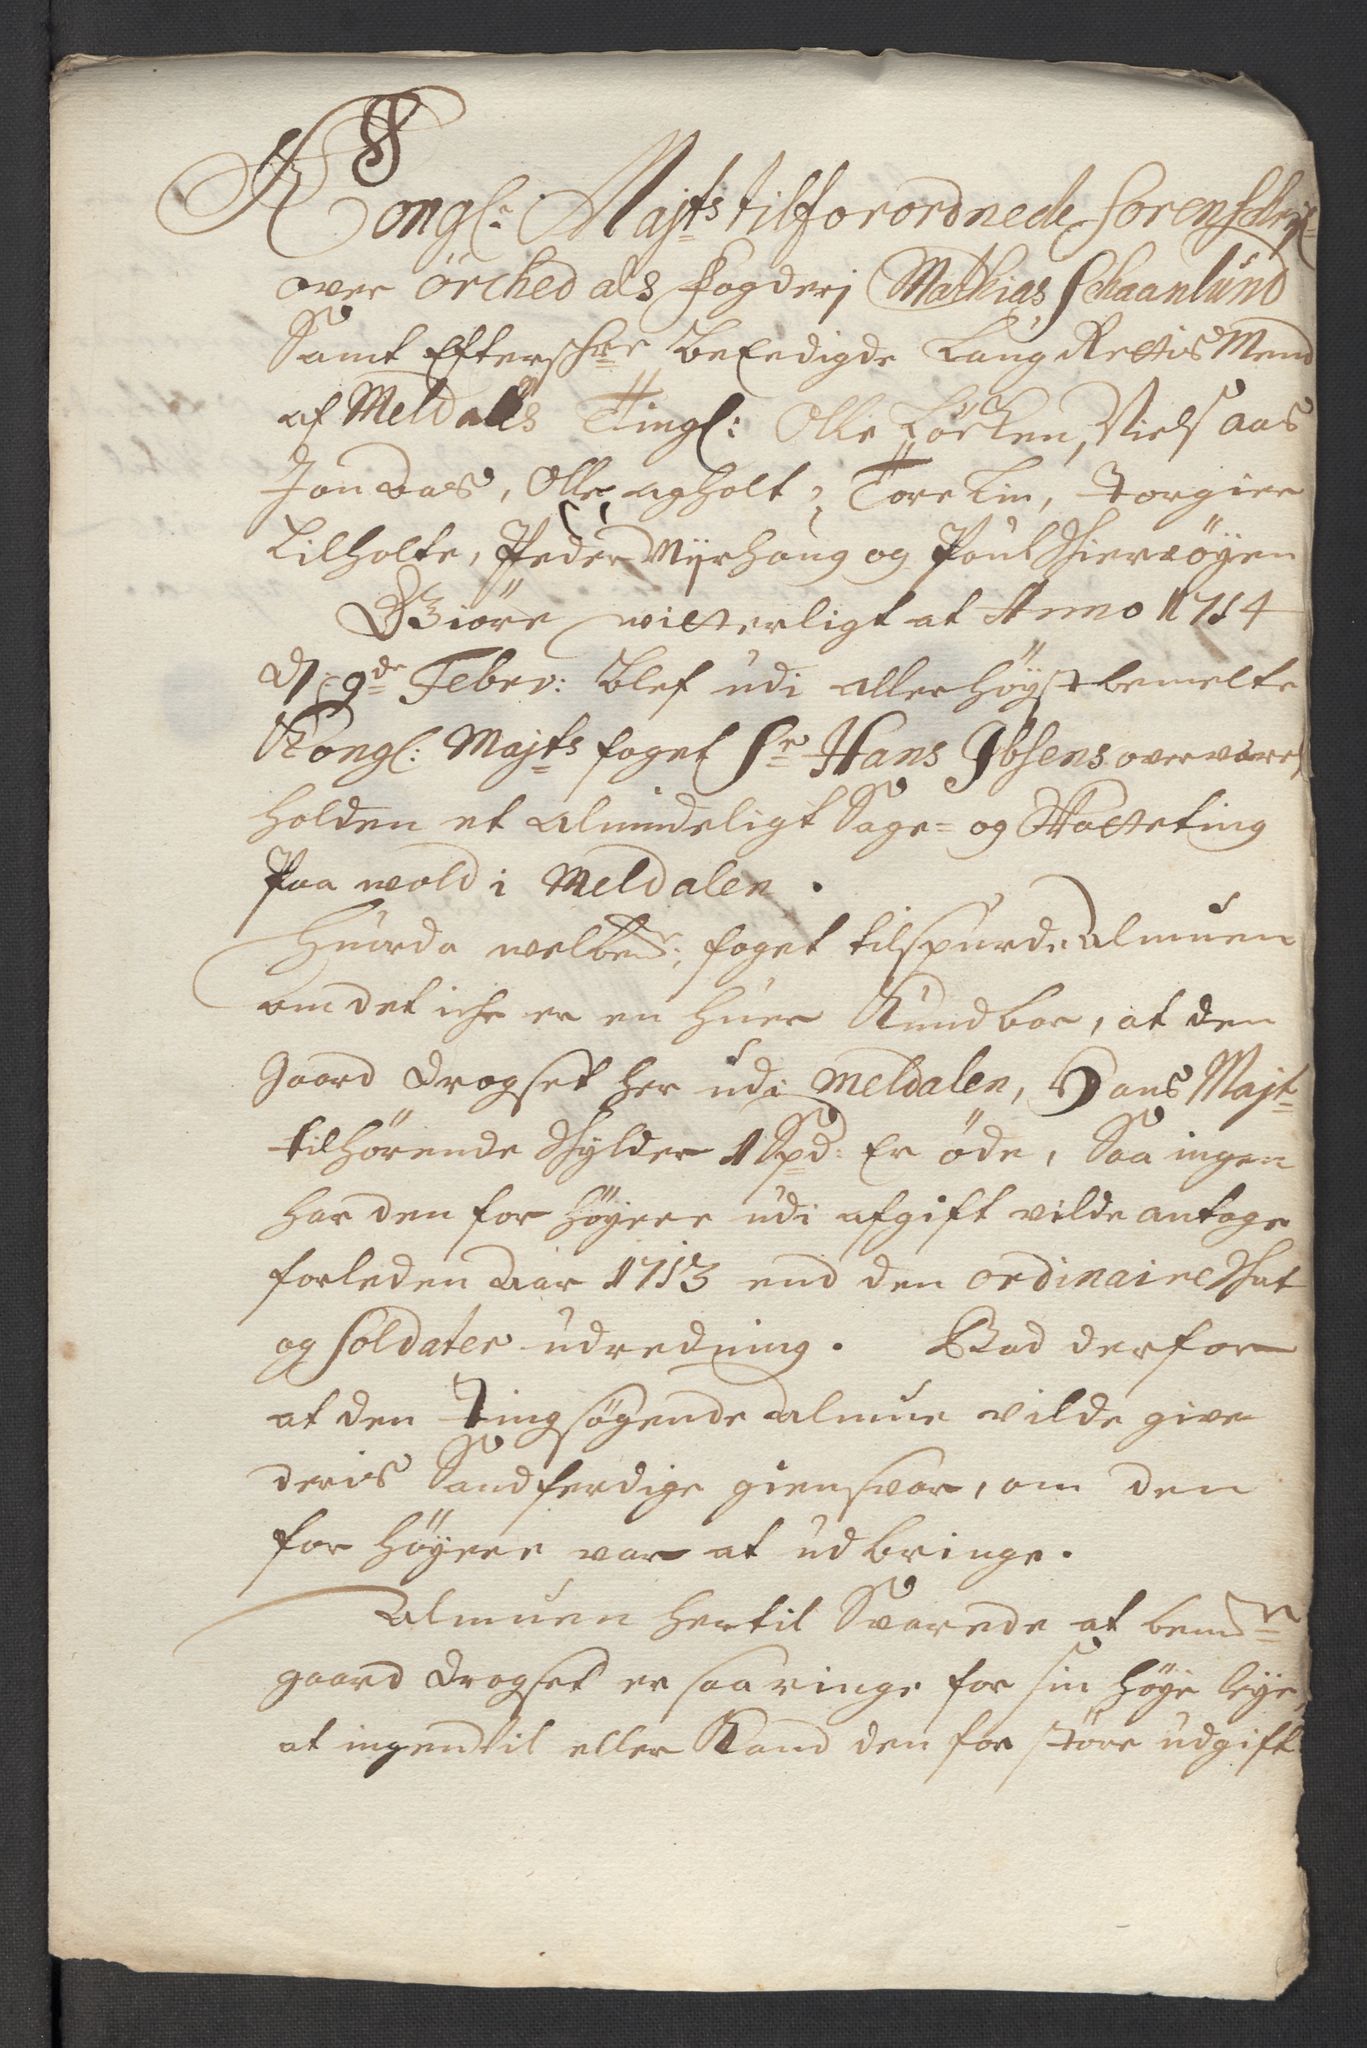 Kongl: Majts tilforordnede Sorenschrif=
over örchedals fogderi Mathias Schaanlund
Samt Efterschr: beEedigde Laug Rettis Mend
af Meldals Tingl: Olle Löchen, Niels Aas
Jon Aas, Olle agholt, Tore Lin, Torgier
Lilholte, Peder Myrhaug og Poul
Giöre witterligt at Anno 1714
d: 9de Febrv: blef udi allerhöyst bemelte
Kongl: Majts foget Sr Hans Ibsens overværelse
holden et almindeligt Sage= og Skatteting
Paa wold i Meldalen.
Huorda welbemte: foget tilspurde Almuen
om det iche er en huer Kundbar, at den
gaard Drogset her udi Meldalen, Hans Majt=
tilhörende Skylder 1 Spd: Er öde, Saa ingen
har den for höyere udi afgift vilde antage
forleden Aar 1713 end den ordinaire Skat
og Soldater udredning. Bad derfor
at den Tingsögende Almue vilde give
deris Sandferdige giensvar, om den
for höyere var at udbringe.
Almuen hertil Svarede at bemte
gaard Drogset er saa ringe for sin höye leye,
at ingen vil eller Kand den for störe udgift